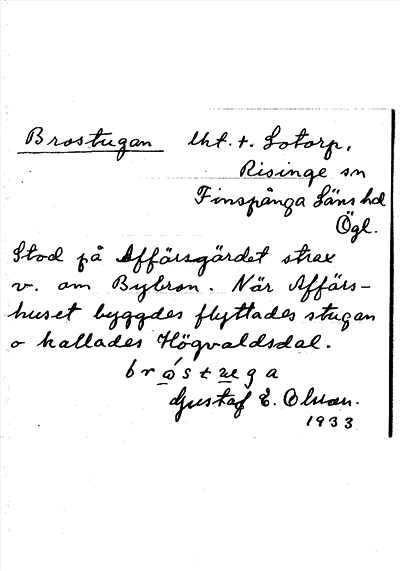 Brostugan lht. t. Sotorp,
Risinge sn
Finspånga Läns hd
Ögl.
Stod på Affärsgärdet strax
v. om Bybron. När Affärs-
huset byggdes flyttades stugan
o kallades Högvaldsdal.
Gustaf E. Olsson.
1933